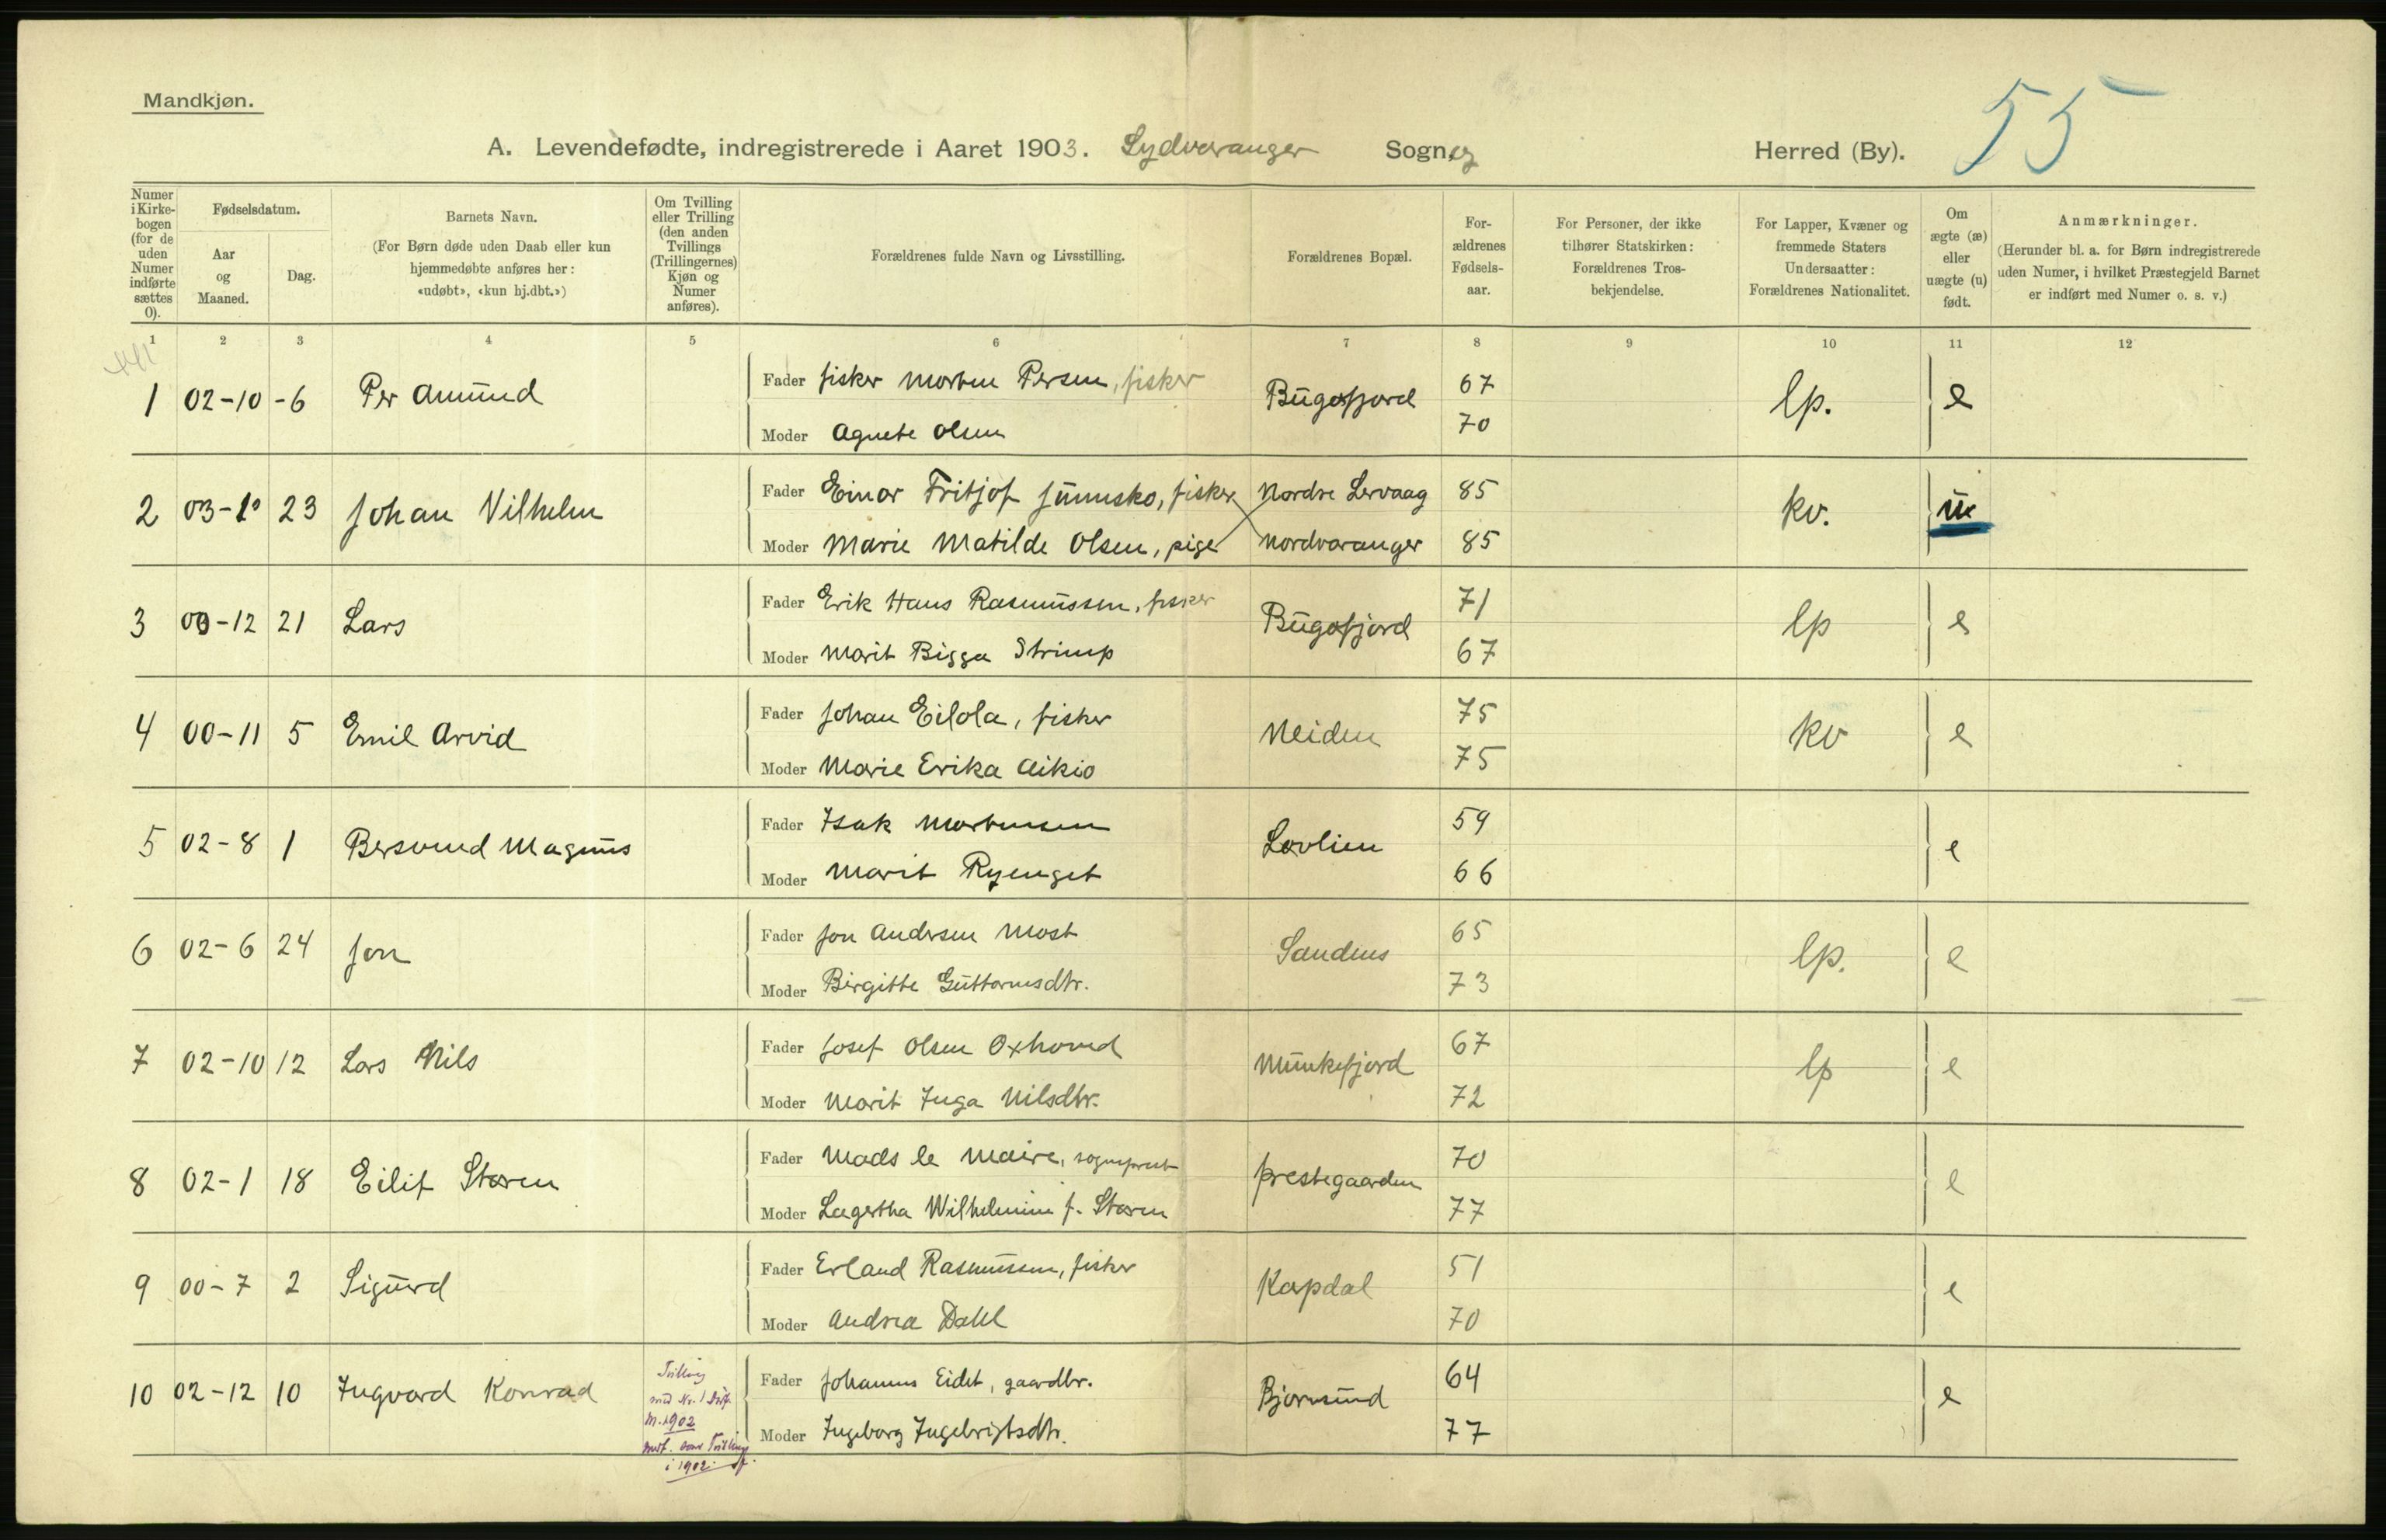 Mandkjøn.
55
A. Levendefødte, indregistrerede i Aaret 1903. Sydvaranger Sogn, og Herred (By).
Numer i Kirkebogen (for de uden Numer indførte sættes 0).
Fødselsdatum.
Aar og Maaned.
Dag.
Barnets Navn.
(For Børn døde uden Daab eller kun hjemmedøbte anføres her: «udøbt», «kun hj.dbt.»)
Om Tvilling eller Trilling (den anden Tvillings (Trillingernes) Kjøn og Numer anføres).
Forældrenes fulde Navn og Livsstilling.
Forældrenes Bopæl.
Forældrenes Fødselsaar.
For Personer, der ikke tilhører Statskirken: Forældrenes Trosbekjendelse.
For Lapper, Kvæner og fremmede Staters Undersaatter: Forældrenes Nationalitet.
Om ægte (æ) eller uægte (u) født.
Anmærkninger.
(Herunder bl. a. for Børn indregistrerede uden Numer, i hvilket Præstegjeld Barnet er indført med Numer o. s. v.)
1 2 3 4 5 6 7 8 9 10 11 12
1 02-10 -6 Per Amund Fader fisker Morten Persen, fisker Bugøfjord 67 lp. e
Moder Agnete Olsen 70
2 03-10 23 Johan Vilhelm Fader Einar Fritjof Junnsko, fisker Nordre Lervaag 85 kv. u
Moder Marie Matilde Olsen, pige Nordvaranger 85
3 00-12 21 Lars Fader Erik Hans Rasmussen, fisker Bugøfjord 71 lp e
Moder Marit Bigga Strimp 67
4 00-11 5 Emil Arvid Fader Johan Eilola, fisker Neiden 75 kv e
Moder Marie Erika Aikio 75
5 02-8 1 Bersvend Magnus Fader Isak Mortensen Løvlien 59 e
Moder Marit Ryenget 66
6 02-6 24 Jon Fader Jon Andersen Most Sandnes 65 lp. e
Moder Birgitte Guttormsdtr. 73
7 02-10 12 Lars Nils Fader Josef Olsen Oxhoved Munkefjord 67 lp e
Moder Marit Inga Nilsdtr. 72
8 02-1 18 Eilif Støren Fader Mads le Maire, sogneprest prestegaarden 70 e
Moder Lagertha Wilhelmine f. Støren 77
9 00-7 2 Sigurd Fader Erland Rasmussen, fisker Kopdal 51 e
Moder Andrea Dahl 70
10 02-12 10 Ingvard Konrad Trilling Fader Johannes Eidet, gaardbr. Bjørnsund 64 e
med Nr. 1
M. 1902 Moder Ingeborg Ingebrigtsdtr. 77
i 1902.